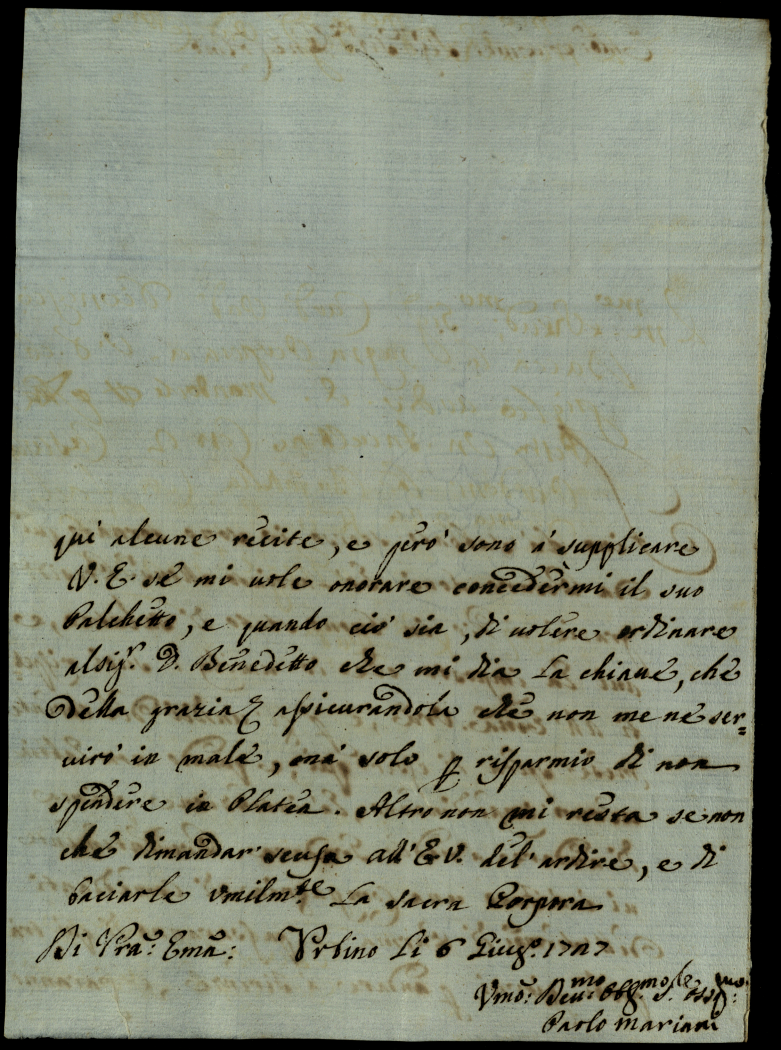 qui alcune recite, e però sono à supplicare
V. E. se mi vole onorare concedermi il suo
Palchetto, e quando ciò sia, di volere ordinare
al Sig.r D. Benedetto che mi dia la chiave, che
della grazia assicurandola che non me ne ser=
virò in male, mà solo p risparmio di non
spendere in Platea. Altro non mi resta se non
che dimandar scusa all'E V. del'ardire, e di
baciarle Vmilm.te la sacra Porpora
Di Vra: Ema: Vrbino li 6 Giug.o 1727
Vmo: Dev.mo Obb.mo
Paolo Mariani